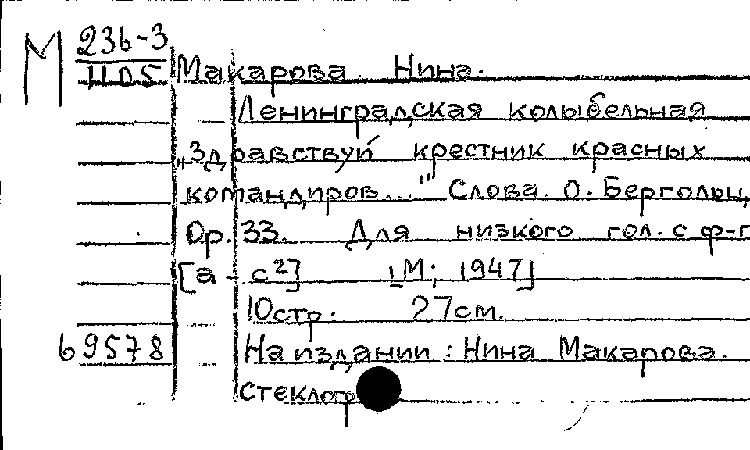 М 236-3
1105 Макарова Нина.
Ленинградская колыбельная
„Здравствуй крестник красных
командиров..." Слова О. Берголь
Ор. 33. Для низкого гол. с ф-п
[а - с²] [М; 1947]
10стр. 27см.
69578 На издании: Нина Макарова.
Стеклогр